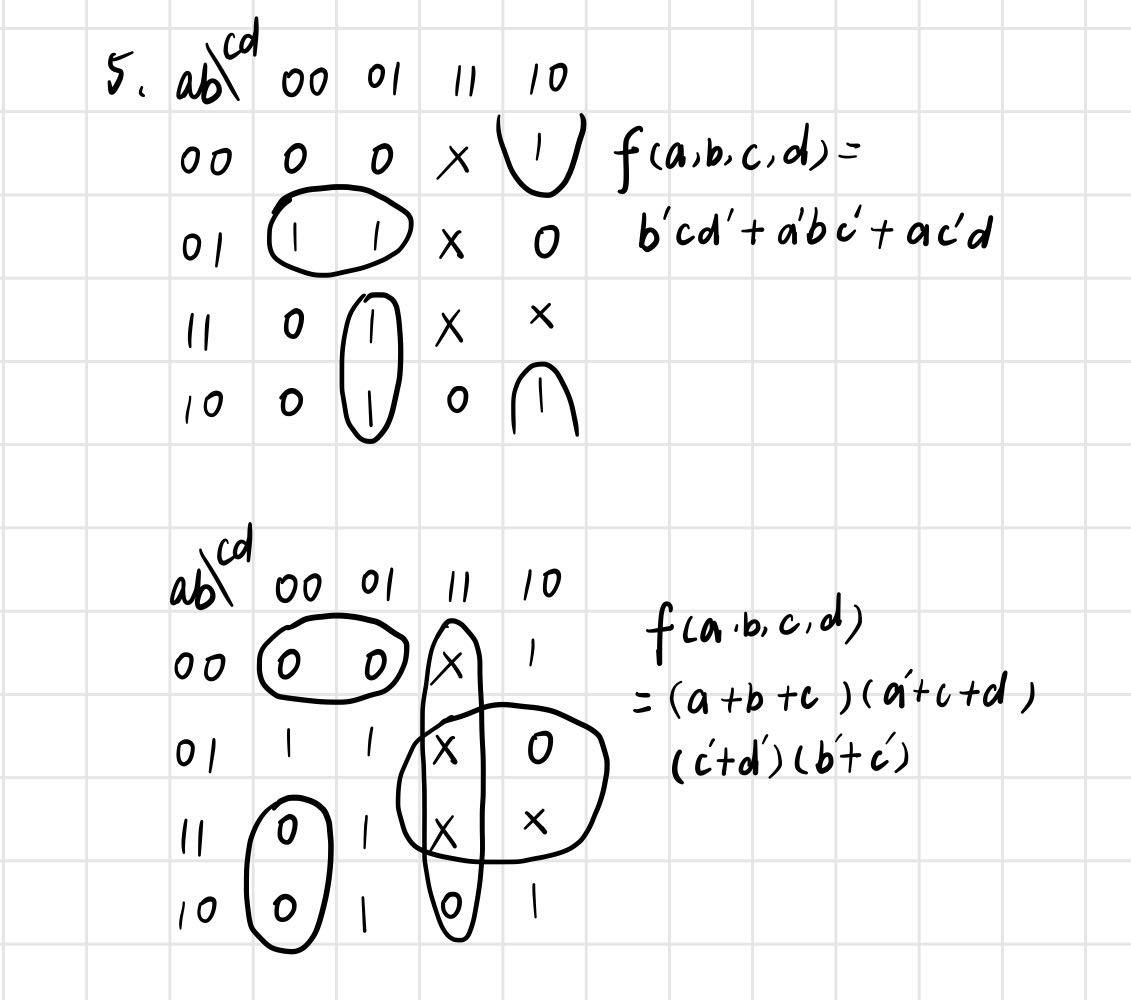 5. ab\cd 00 01 11 10
00 0 0 x 1
01 1 1 x 0
11 0 1 x x
10 0 1 0 1
f(a,b,c,d)=
b'cd'+a'bc'+ac'd
ab\cd 00 01 11 10
00 0 0 x 1
01 1 1 x 0
11 0 1 x x
10 0 1 0 1
f(a.b,c,d)
=(a+b+c)(a'+c+d)
(c'+d')(b'+c')